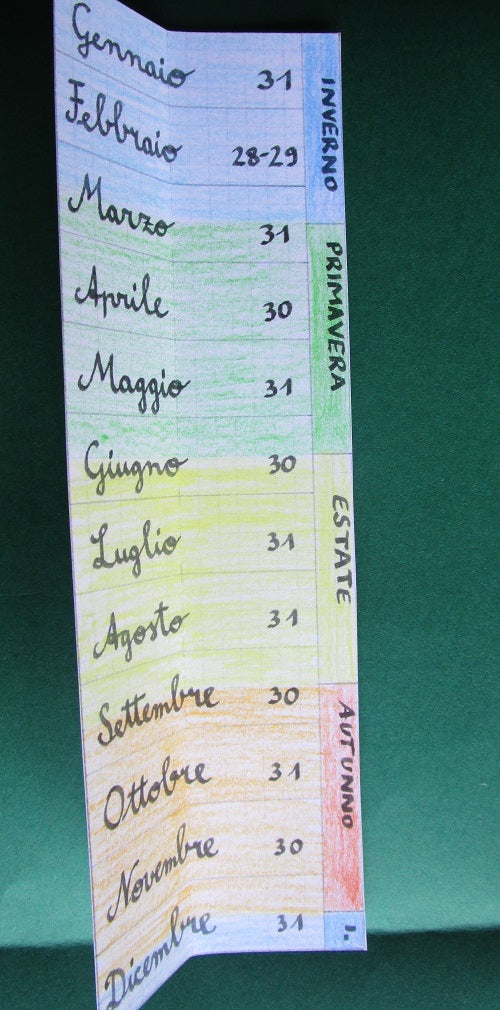 Gennaio 31
Febbraio 28-29
INVERNO
Marzo 31
Aprile 30
PRIMAVERA
Maggio 31
Giugno 30
Luglio 31
ESTATE
Agosto 31
Settembre 30
Ottobre 31
AUTUNNO
Novembre 30
Dicembre 31
I.